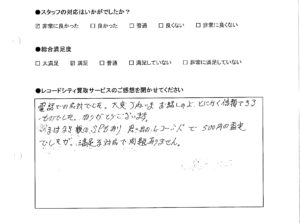 ●スタッフの対応はいかがでしたか?
☑ 非常に良かった □ 良かった □ 普通 □ 良くない □ 非常に良くない
●総合満足度
□ 大満足 ☑ 満足 □ 普通 □ 満足していない □ 非常に満足していない
●レコードシティ買取サービスのご感想を聞かせてください
電話での対応でした。大変 お話しの上、とにかく信頼できる
ものでした。ありがとうございます。
SPもあり レコードで 500円の査定
でしたが、満足な対応で問題ありません。